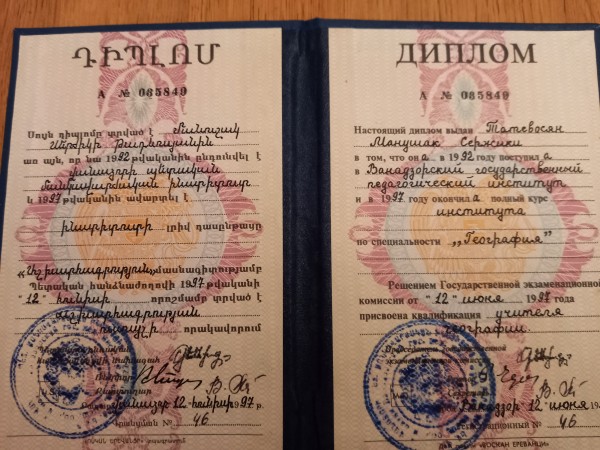 ԴԻՊԼՈՄ
Ա № 035849
Սույն դիպլոմը տրված է Մանուշակ
Սերժիկի Թադևոսյանին
առ այն, որ նա 1992 թվականին ընդունվել է
Վանաձորի պետական
մանկավարժական ինստիտուտ
և 1997 թվականին ավարտել է
ինստիտուտի լրիվ դասընթացը
«Աշխարհագրություն» մասնագիտությամբ
Պետական հանձնաժողովի 1997 թվականի
"12" հունիսի որոշմամբ տրված է
աշխարհագրության
որակավորում
Վանաձոր 12 հունիսի 1997 թ.
Գրանցման № 46
ДИПЛОМ
А № 035849
Настоящий диплом выдан Татевосян
Манушак Сержики
в том, что она в 1992 году поступила
в Ванадзорский государственный
педагогический институт
и в 1997 году окончила полный курс
института
по специальности ,,География"
Решением Государственной экзаменационной
комиссии от "12" июня 1997 года
присвоена квалификация учителя
географии
Ванадзор 12 июня
Регистрационный № 46
«ВОСКАН ЕРЕВАНЦИ»